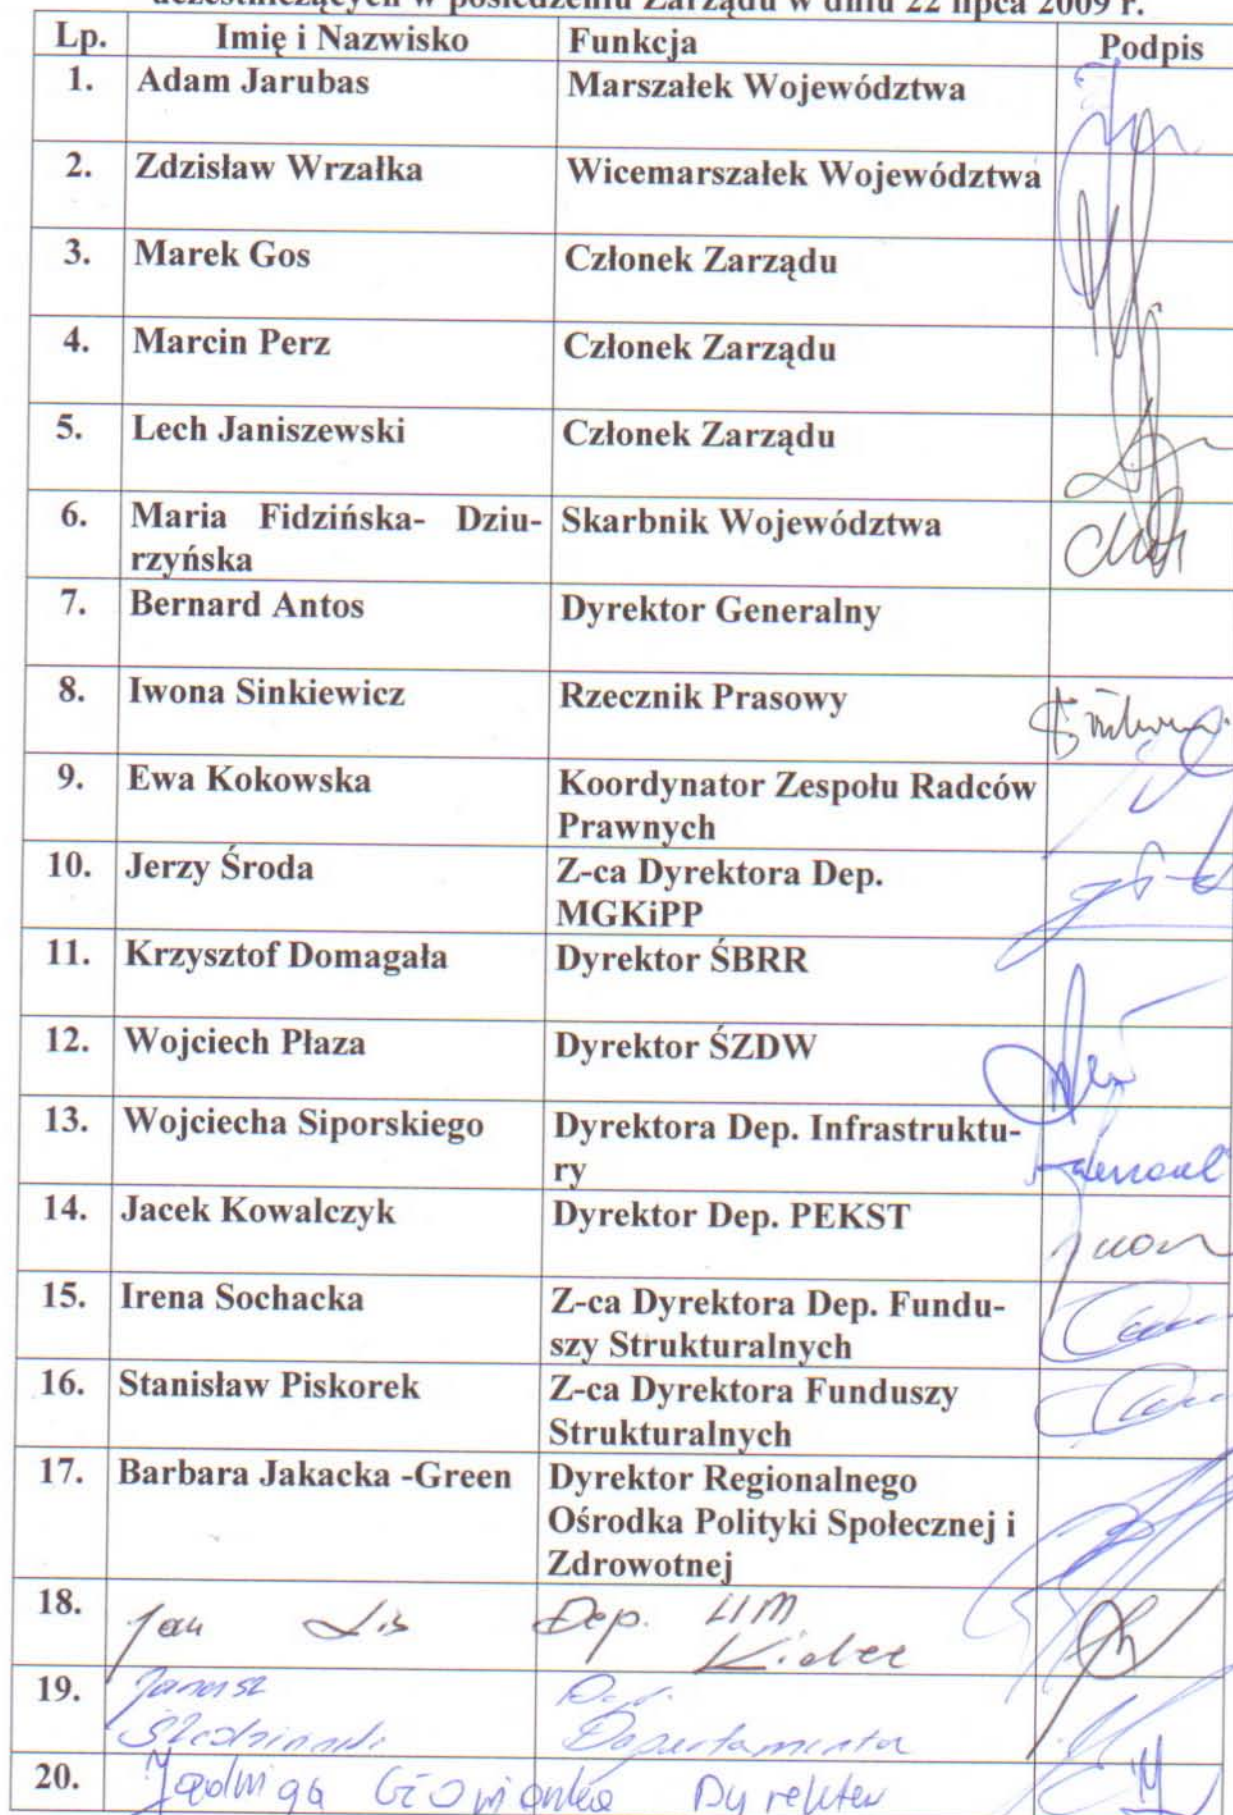 uczestniczących w posiedzeniu Zarządu w dniu 22 lipca 2009 r.
Lp. Imię i Nazwisko Funkcja Podpis
1. Adam Jarubas Marszałek Województwa
2. Zdzisław Wrzałka Wicemarszałek Województwa
3. Marek Gos Członek Zarządu
4. Marcin Perz Członek Zarządu
5. Lech Janiszewski Członek Zarządu
6. Maria Fidzińska- Dziu- Skarbnik Województwa
rzyńska
7. Bernard Antos Dyrektor Generalny
8. Iwona Sinkiewicz Rzecznik Prasowy
9. Ewa Kokowska Koordynator Zespołu Radców
Prawnych
10. Jerzy Środa Z-ca Dyrektora Dep.
MGKiPP
11. Krzysztof Domagała Dyrektor ŚBRR
12. Wojciech Płaza Dyrektor ŚZDW
13. Wojciecha Siporskiego Dyrektora Dep. Infrastruktu-
ry
14. Jacek Kowalczyk Dyrektor Dep. PEKST
15. Irena Sochacka Z-ca Dyrektora Dep. Fundu-
szy Strukturalnych
16. Stanisław Piskorek Z-ca Dyrektora Funduszy
Strukturalnych
17. Barbara Jakacka -Green Dyrektor Regionalnego
Ośrodka Polityki Społecznej i
Zdrowotnej
18. Jan Lis Dep.
19. Janusz
Departamentu
20. Jadwiga Dyrektor